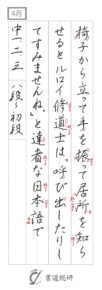 4月
椅子から立って手を擺って居所を知ら
せるとルロイ修道士は、呼び出したりし
てすみませんね、と達者な日本語で
中一・二・三　八段～初段
書道総研